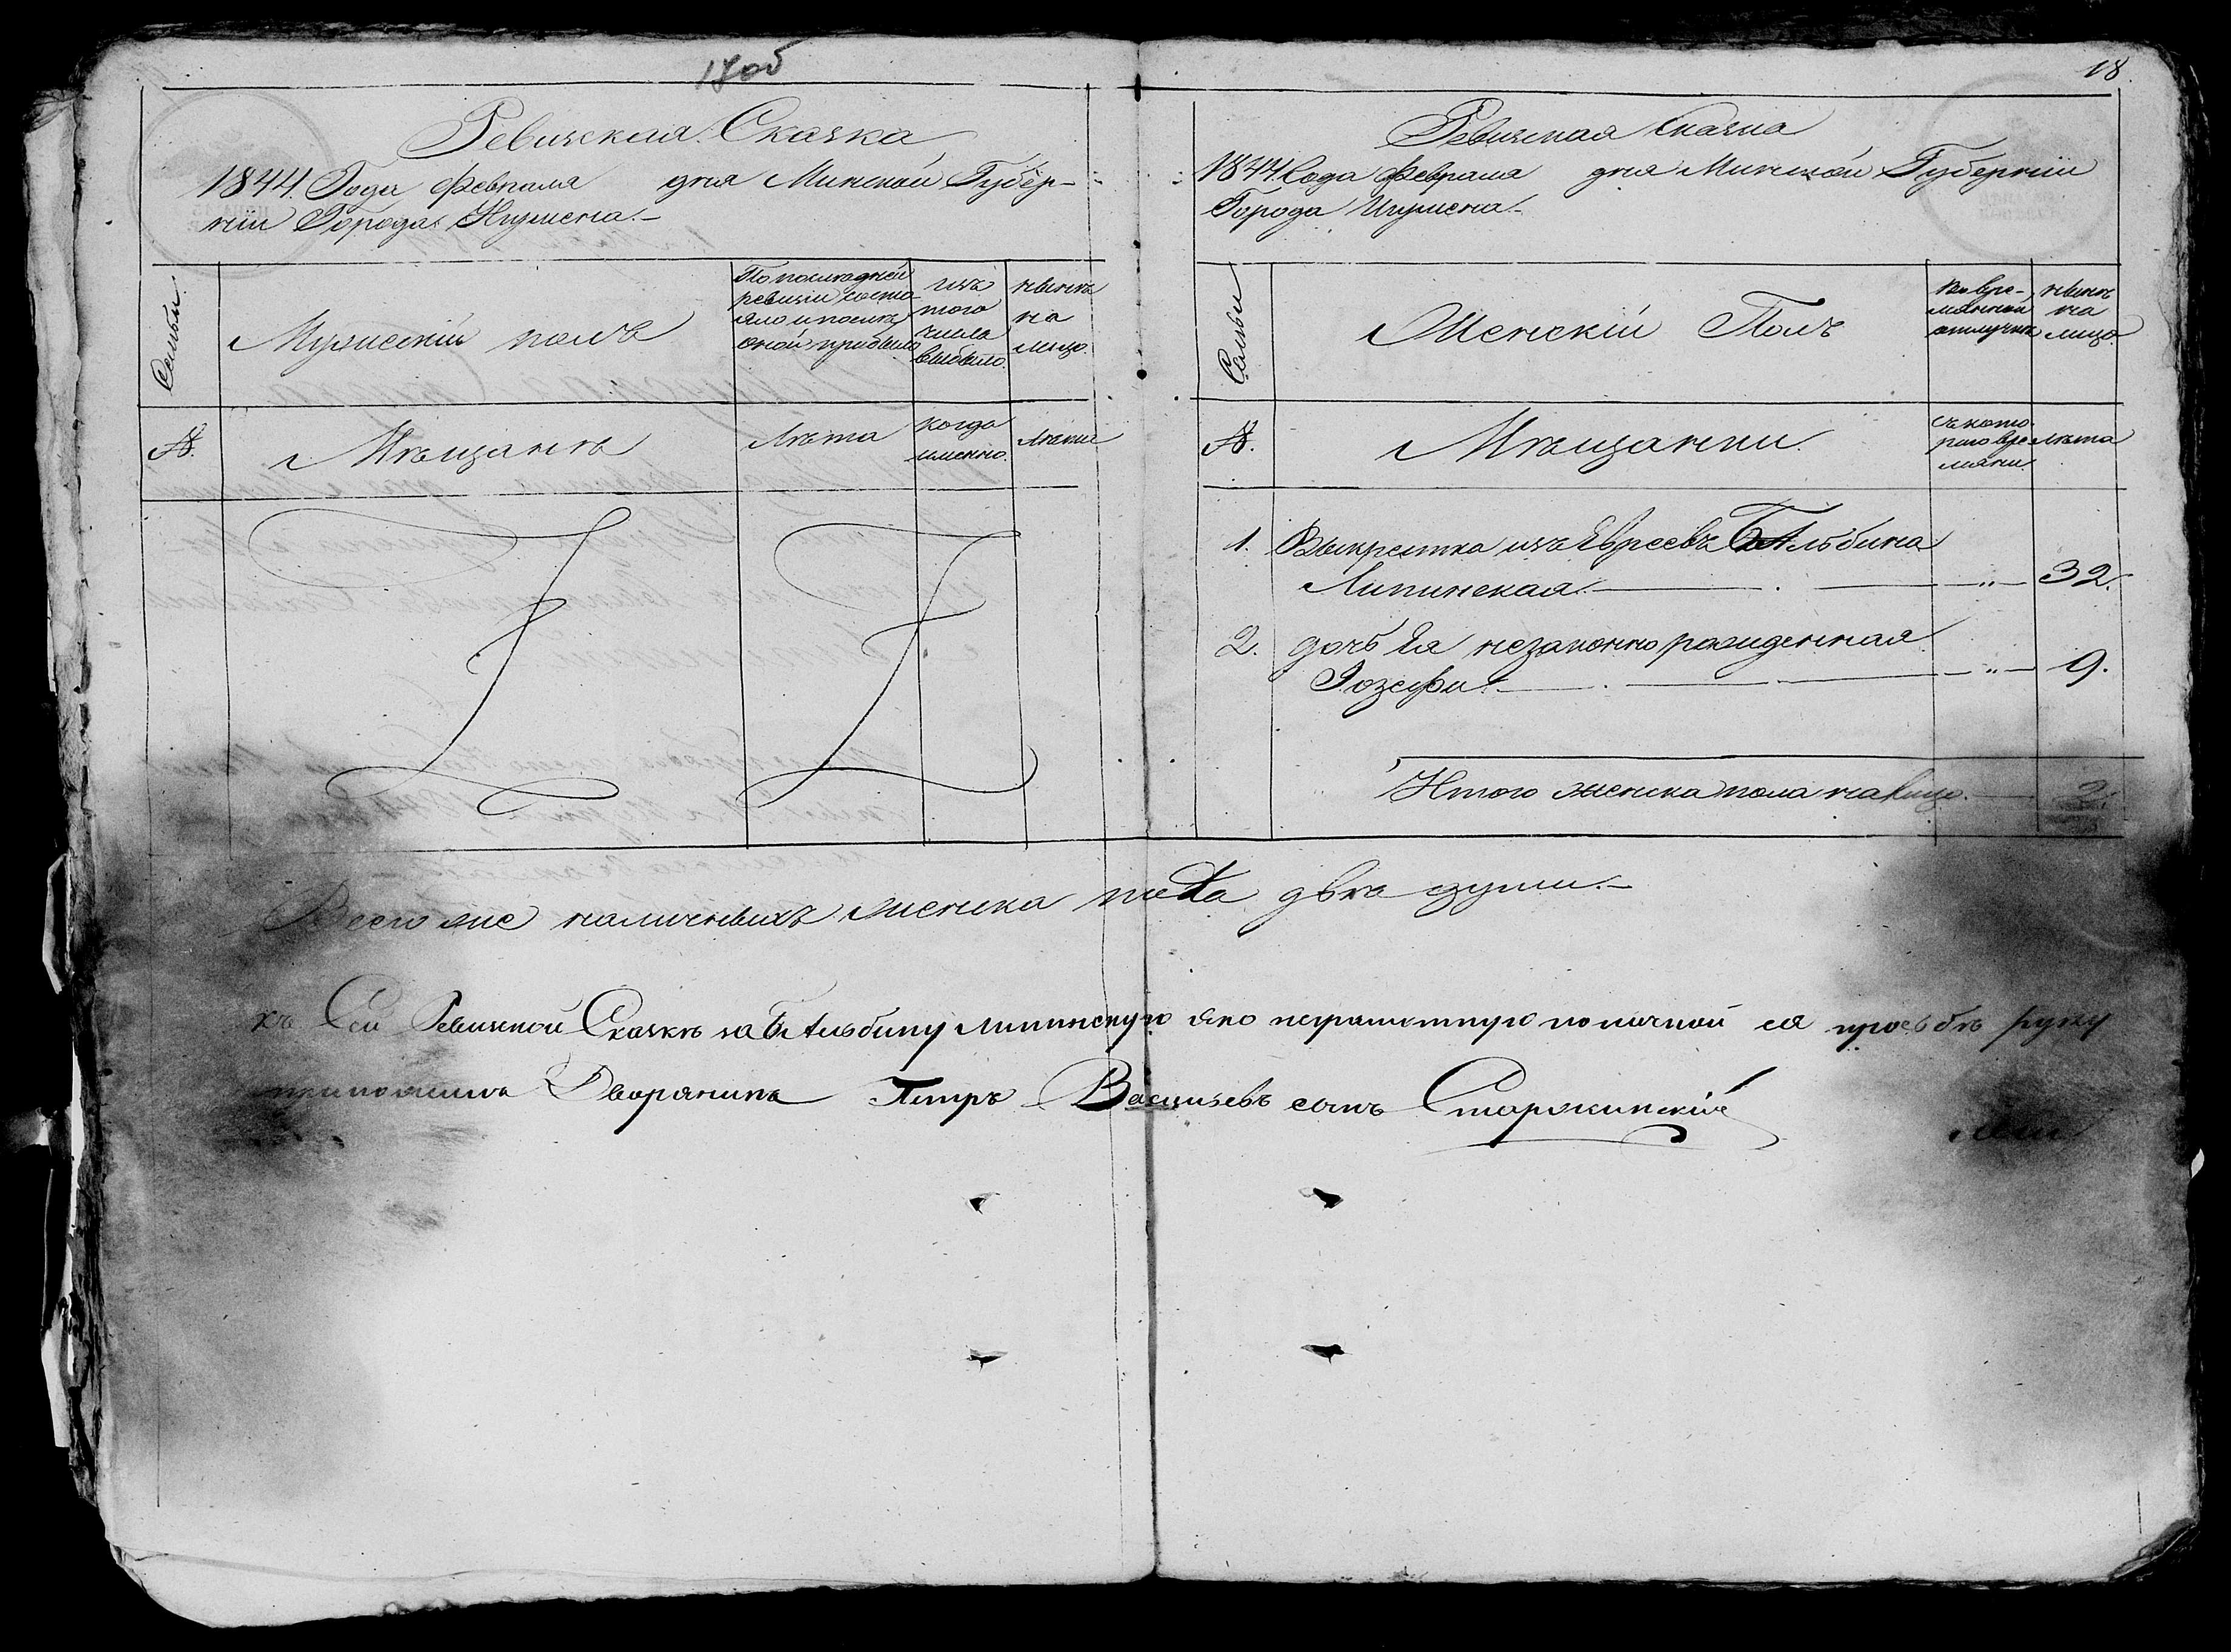 1805
18.
Ревизская Сказка
1844. Года Февраля дня Минской Губер-
нiи Города Игумена.-
Семьи
Мужескiй полъ
По последней
ревизiи состо-
яло и после
оной прибыло
изъ
того
числа
выбыло.
ныне
на
лицо.
№.
Мещане
Лета
когда
именно.
Лета
Ревизская Сказка
1844 Года Февраля дня Минской Губернiи
Города Игумена.-
Семьи
Женскiй Полъ
Во вре-
мянной
отлучке
ныне
на
лицо.
№.
Мещанки.
съ кото-
раго вре
мяни.
лета
1. Выкрестка изъ Евреевъ Альбина
Липинская. — „ — 32.
2. дочь Ея незаконно рожденная
Iозефа. — „ — 9.
Итого женска пола на лицо. — 2.
Всего же наличныхъ женска пола две души.-
къ Сей Ревизской Сказке за Альбину Липинскую яко неграмотную по личной ея прозьбе руку
приложилъ Дворянинъ Петръ Васильевъ сынъ Старжинскiй